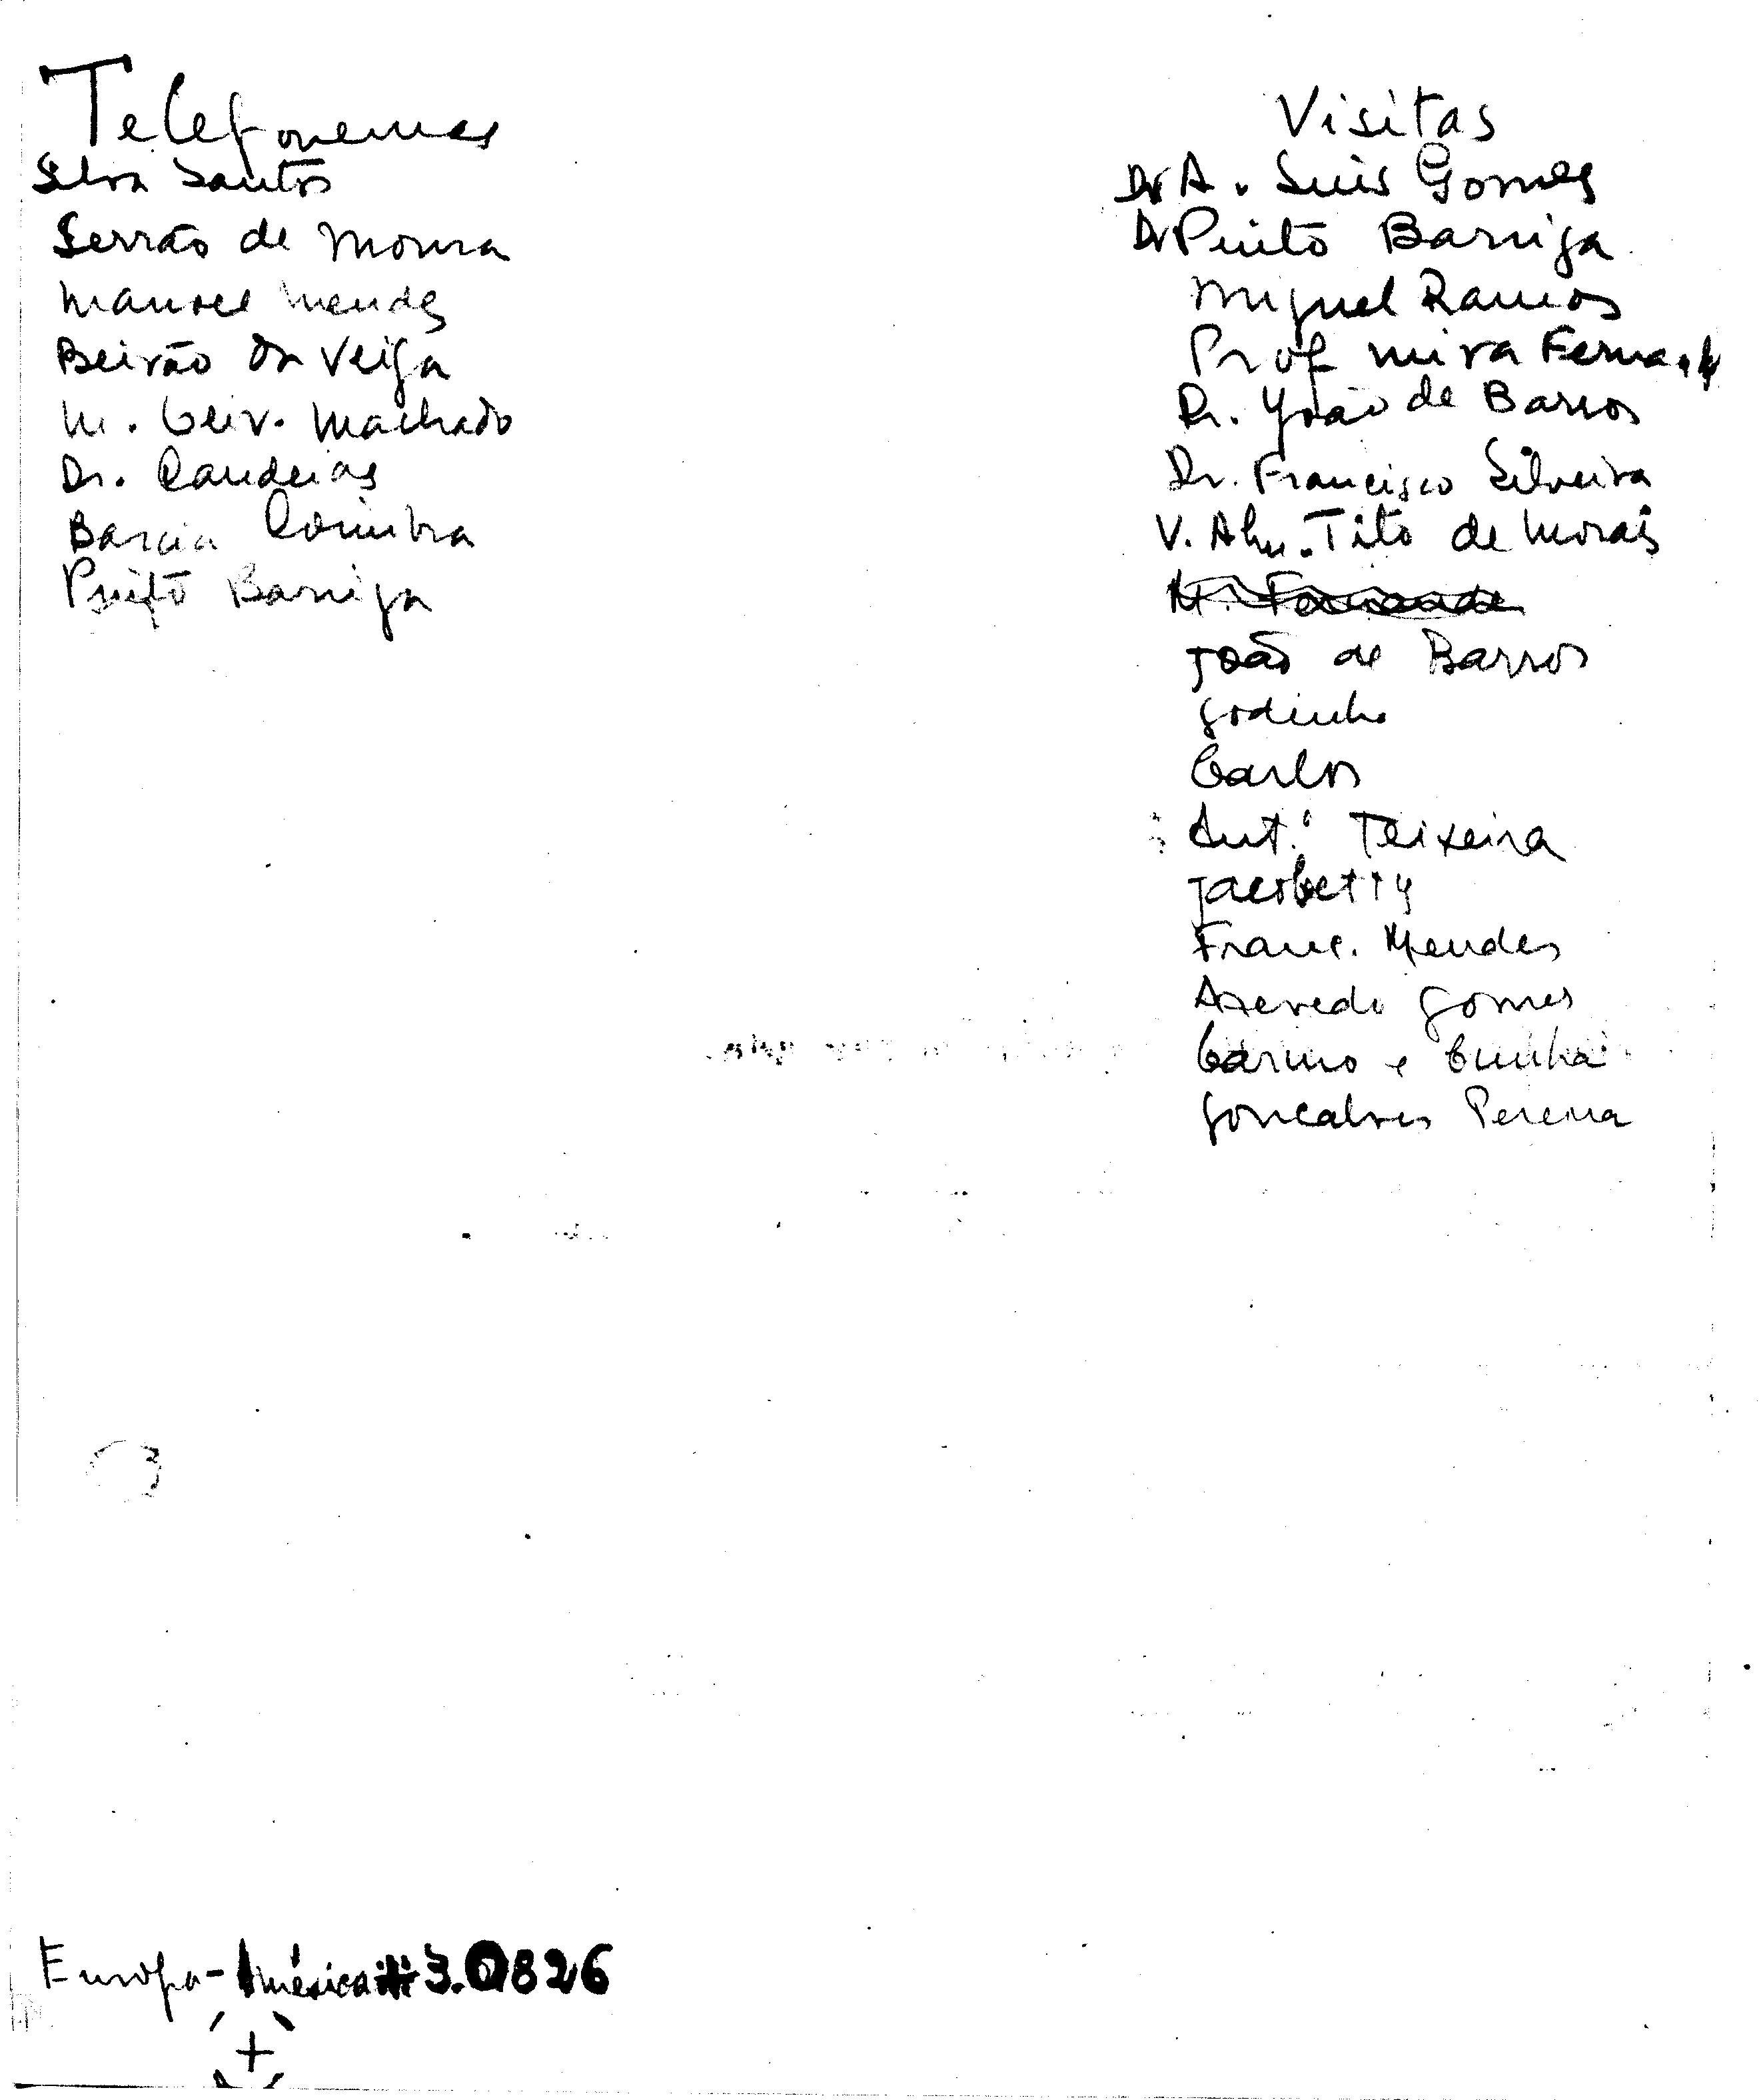 Telefonemas
Silva Santos
Serrão de Moura
Manoel Mendes
Beirão da Veiga
M. Oliv. Machado
Dr. Candeias
Garcia Coimbra
Pinto Barriga
Visitas
Dr A. Luis Gomes
Dr Pinto Barriga
Miguel Ramos
Prof Mira Fernand
Dr. João de Barros
Dr. Francisco Silveira
V. Alm. Tito de Morais
João de Barros
Godinho
Carlos
Antº Teixeira
Jacobetty
Franc. Mendes
Azevedo Gomes
Carmo e Cunha
Gonçalves Pereira
Europa-América 3.0826